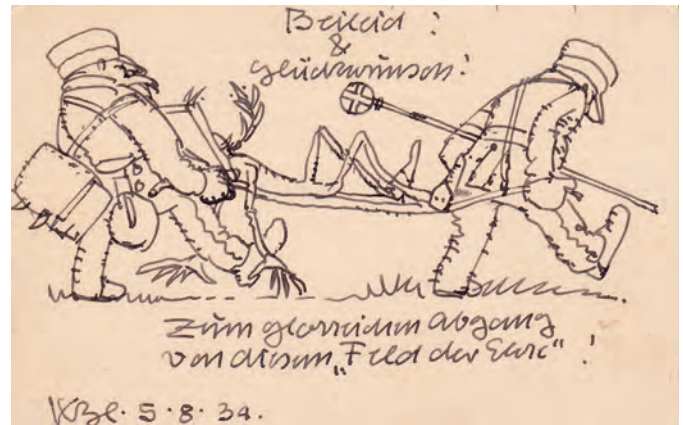 Beileid !
&
Glückwunsch !
Zum glorreichen Abgang
von diesem „Feld der Ehre“ !
Kzl. 5.8.34.